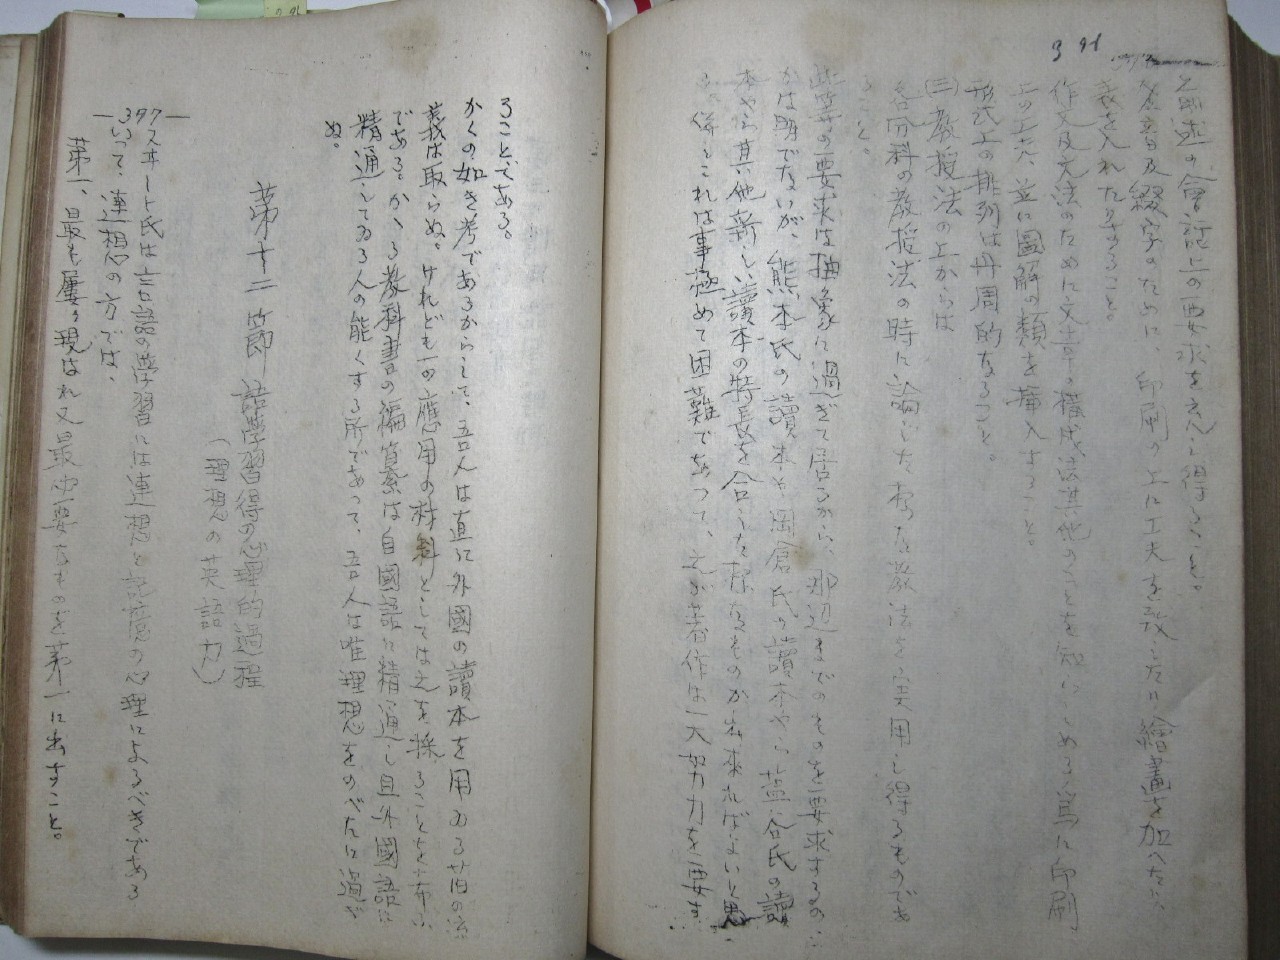 391
と前述の會話上の要求を充し得ること。
發音及綴字のために、印刷の上に工夫を致したり繪畫を加へたり、
表を入れたりすること。
作文及文法のために文章の構成法其他のことを知らしめる為に印刷
上の工夫、並に圖解の類を挿入すること。
形式上の排列は円周的なること。
(三)教授法の上からは
各分科の教授法の時に論じた様な教法を実用し得るものであ
ること。
此等の要求は抽象に過ぎて居るから、那辺までのものを要求するの
かは明でないが、熊本氏の讀本や岡倉氏の讀本や、塩谷氏の讀
本やら其他新しい讀本の特長を合した様なものが出來ればよいと思
ふ。併しこれは事極めて困難であつて、之が著作は一大努力を要す
ることである。
かくの如き考であるからして、吾人は直に外國の讀本を用ゐる旧の流
義は取らぬ。けれども一の應用の材料としては之を採ることを
である。かゝる教科書の編纂は自國語に精通し且外國語に
精通してゐる人の能くする所であつて、吾人は唯理想をのべたに過ぎ
ぬ。
第十二節 語学習得の心理的過程
(理想の英語力)
397
スヰート氏は言語の学習には連想と記憶の心理によるべきである
といつて、連想の方では、
第一、最も屢々現はれ又最必要なものを第一に出すこと。